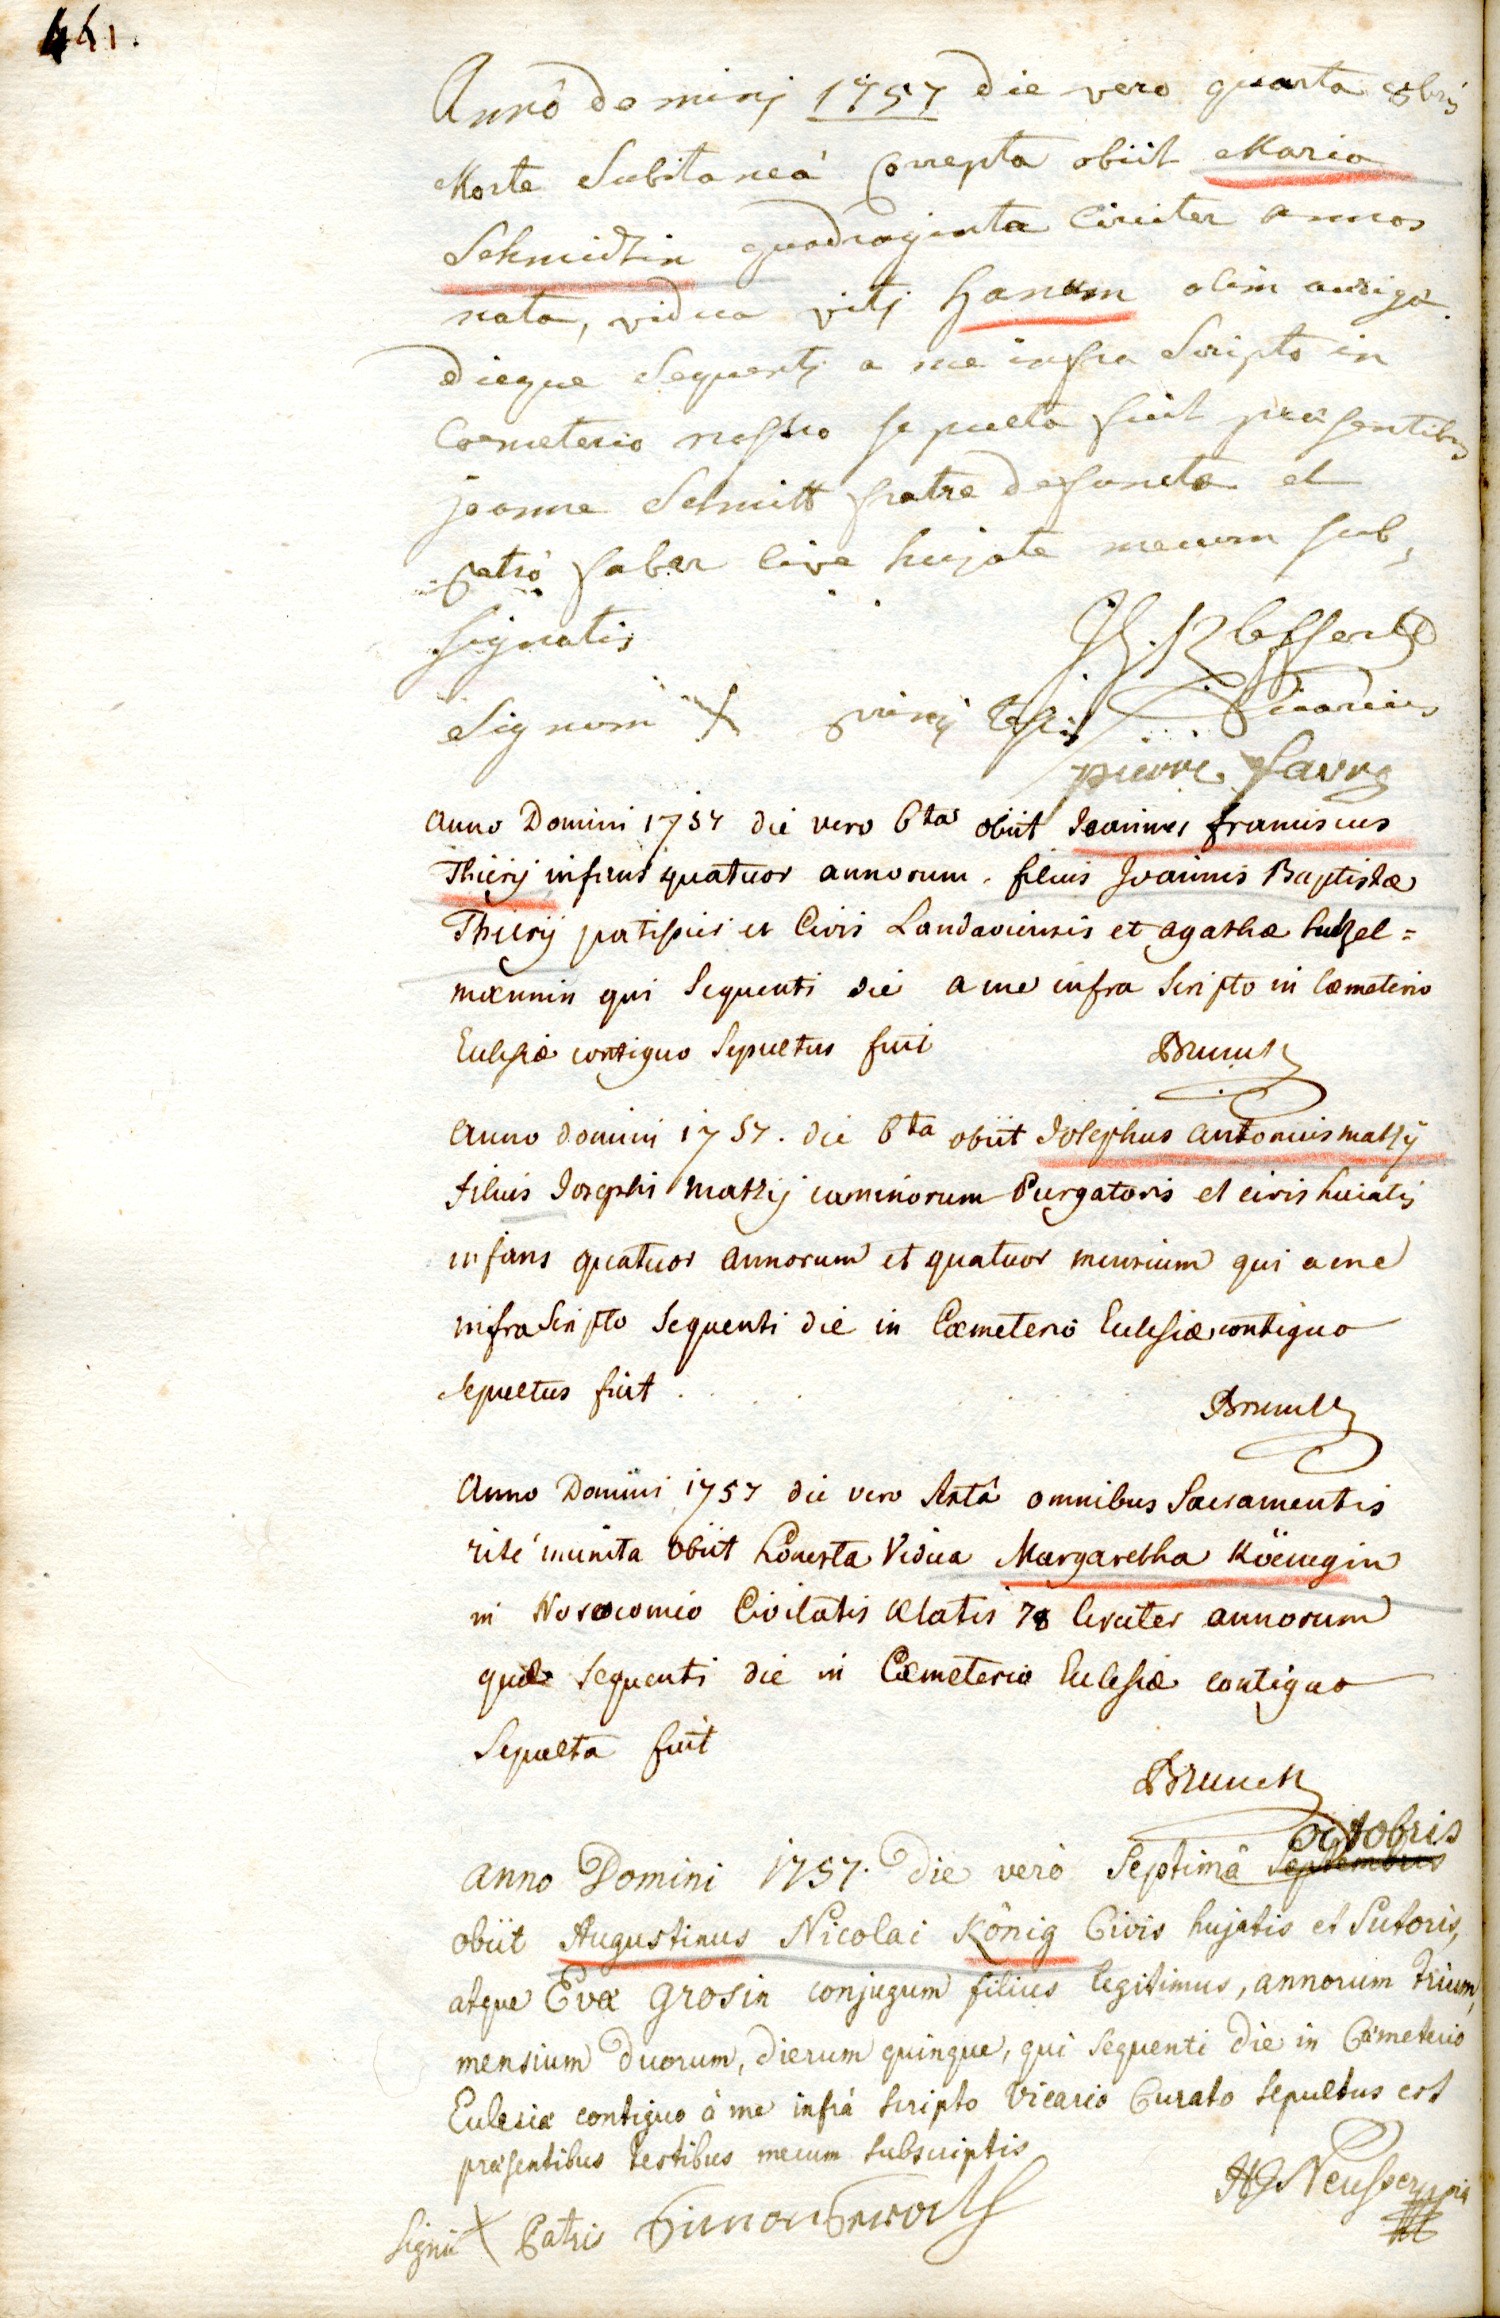 441.
Anno Dominj 1757 die vero quarta 8bris
Morte Subitaneâ Correpta obiit Maria
Schmidtin quadraginta Circiter annos
nata, vidua vitj hanum olim auriga.
dieque Sequentj a me infra Scripto in
Coemeterio nostro sepulta fuit præsentibus
joanne Schmitt fratre defunctæ et
petro faber Cive hujate mecum sub,
signatis
Vicarius
Signum X primj testis
pierre favre
Anno Domini 1757 die vero 6ta obiit Joannes franciscus
Thierij infans quatuor annorum. filius Joannis Baptistæ
Thierij patissier et Civis Landaviensis et agathæ hutzel=
mænnin qui Sequenti die a me infra Scripto in Cœmeterio
Eclesiæ contiguo Sepultus fuit
Brunck
Anno domini 1757. die 6ta obiit Josephus antonius matzij
filius Josephi matzij caminorum Purgatoris et civis huiatis
infans quatuor annorum et quatuor mensium qui a me
infra Scripto Sequenti die in Cœmeterio Eclesiæ contiguo
Sepultus fuit.
Brunck
Anno Domini 1757 die vero Sextâ omnibus Sacramentis
rité munita obiit honesta Vidua Margaretha Köenegin
in Nosocomio Civitatis ætatis 78 Circiter annorum
quæ Sequenti die in Cœmeterio Eclesiæ contiguo
Sepulta fuit
Brunck
octobris
anno Domini 1757. Die verò Septimâ Septembris
obiit Augustinus Nicolai König Civis hujatis et Sutoris,
atque Evæ Grosin conjugum filius legitimus, annorum trium,
mensium duorum, dierum quinque, qui sequenti die in Cœmeterio
Eclesiæ contiguo à me infrà scripto Vicario Curato sepultus est
præsentibus testibus mecum subscriptis
Signū X Patris Simon